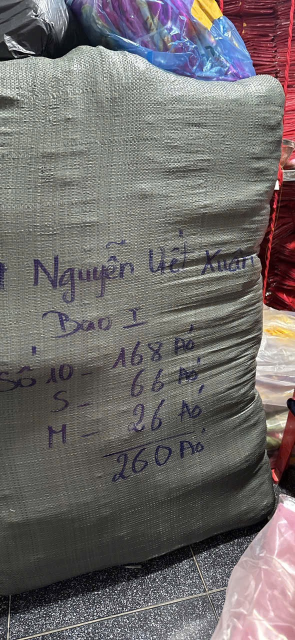 Nguyễn Viết Xuân
Bao I
Số 10 - 168 Áo
S - 66 Áo
M - 26 Áo
260 Áo